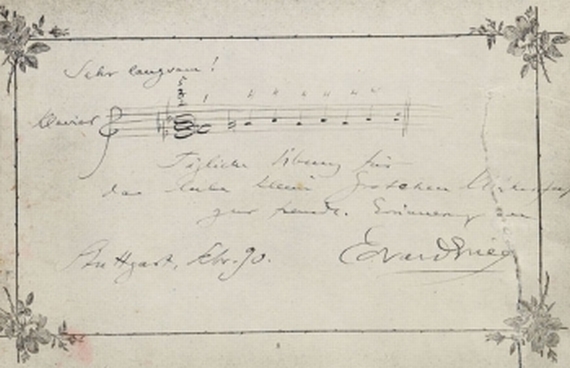 Sehr langsam!
Klavier
Tägliche Übung für
das liebe kleine
zur freundl. Erinnerung an
Stuttgart, Febr. 90. Edvard Grieg